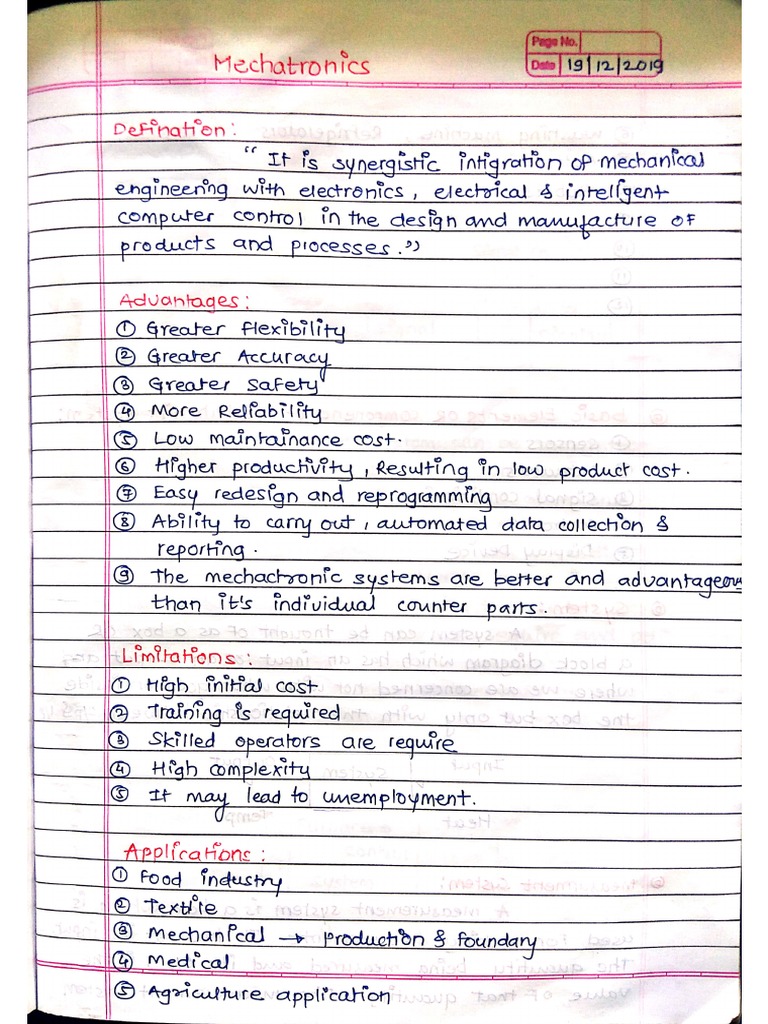 Mechatronics
Page No.
Date 19/12/2019
Defination:
"It is synergistic intigration of mechanical
engineering with electronics, electrical & intelligent
computer control in the design and manufacture of
products and processes."
Advantages:
① Greater flexibility
② Greater Accuracy
③ Greater Safety
④ More Reliability
⑤ Low maintainance cost.
⑥ Higher productivity, Resulting in low product cost.
⑦ Easy redesign and reprogramming
⑧ Ability to carry out, automated data collection &
reporting.
⑨ The mechactronic systems are better and advantageous
than it's individual counter parts.
Limitations:
① High initial cost
② Training is required
③ Skilled operators are require
④ High complexity
⑤ It may lead to unemployment.
Applications:
① Food industry
② Textile
③ Mechanical → production & foundary
④ Medical
⑤ Agriculture application